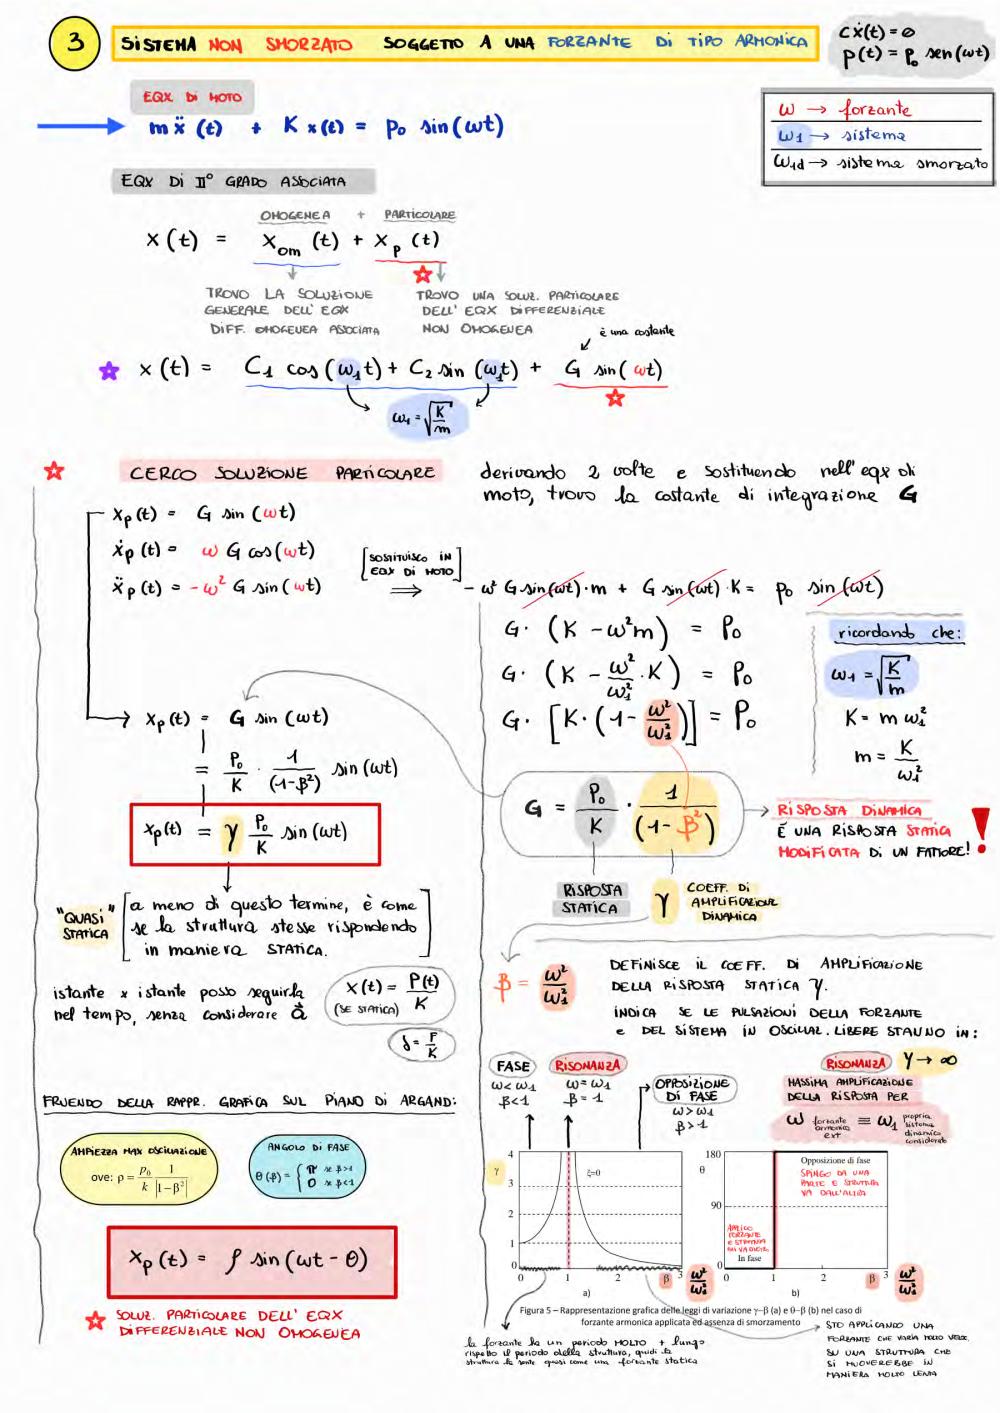 3
SISTEMA NON SMORZATO SOGGETTO A UNA FORZANTE DI TIPO ARMONICA
cẋ(t) = 0
p(t) = p₀ sen(ωt)
EQX. DI MOTO
mẍ(t) + K x(t) = p₀ sin(ωt)
ω → forzante
ω1 → sistema
ω1d → sistema smorzato
EQX DI II° GRADO ASSOCIATA
OMOGENEA + PARTICOLARE
x(t) = x_om(t) + x_p(t)
TROVO LA SOLUZIONE
GENERALE DELL'EQX
DIFF. OMOGENEA ASSOCIATA
TROVO UNA SOLUZ. PARTICOLARE
DELL'EQX DIFFERENZIALE
NON OMOGENEA
è una costante
x(t) = C1 cos(ω1t) + C2 sin(ω1t) + G sin(ωt)
ω1 = √(K/m)
CERCO SOLUZIONE PARTICOLARE
derivando 2 volte e sostituendo nell'eqx di
moto, trovo la costante di integrazione G
xp(t) = G sin(ωt)
ẋp(t) = ω G cos(ωt)
ẍp(t) = -ω² G sin(ωt)
[SOSTITUISCO IN
EQX DI MOTO]
⇒ -ω² G sin(ωt)·m + G sin(ωt)·K = p₀ sin(ωt)
G· (K - ω²m) = P₀
G· (K - ω²/ω1²·K) = P₀
G· [K·(1 - ω²/ω1²)] = P₀
ricordando che:
ω1 = √(K/m)
K = m ω1²
m = K/ω1²
xp(t) = G sin(ωt)
= P₀/K · 1/(1-β²) sin(ωt)
xp(t) = γ P₀/K sin(ωt)
G = P₀/K · 1/(1-β²)
RISPOSTA DINAMICA
È UNA RISPOSTA STATICA
MODIFICATA DI UN FATTORE!
RISPOSTA
STATICA
γ COEFF. DI
AMPLIFICAZIONE
DINAMICA
"QUASI"
STATICA
[a meno di questo termine, è come
se la struttura stesse rispondendo
in maniera STATICA.]
istante x istante posso seguirla
nel tempo, senza considerare a⃗
x(t) = P(t)/K
(SE STATICA)
δ = F/K
β = ω²/ω1²
DEFINISCE IL COEFF. DI AMPLIFICAZIONE
DELLA RISPOSTA STATICA γ.
INDICA SE LE PULSAZIONI DELLA FORZANTE
e DEL SISTEMA IN OSCILLAZ. LIBERE STANNO IN:
FASE
ω<ω1
β<1
RISONANZA
ω=ω1
β=1
OPPOSIZIONE
DI FASE
ω>ω1
β>1
RISONANZA γ→∞
MASSIMA AMPLIFICAZIONE
DELLA RISPOSTA PER
ω forzante armonica ext ≡ ω1 propria sistema dinamico considerato
FRUENDO DELLA RAPPR. GRAFICA SUL PIANO DI ARGAND:
AMPIEZZA MAX OSCILLAZIONE
ove: ρ = p₀/k 1/|1-β²|
ANGOLO DI FASE
θ(β) = { π se β>1
0 se β<1
xp(t) = ρ sin(ωt - θ)
SOLUZ. PARTICOLARE DELL'EQX
DIFFERENZIALE NON OMOGENEA
γ
4
3
2
1
0
ξ=0
0 1 β 3
ω²/ω1²
a)
180
θ
90
0
Opposizione di fase
SPINGO DA UNA
PARTE E STRUTTURA
VA DALL'ALTRA
APPLICO
FORZANTE
E STRUTTURA
In fase
0 1 2 β 3
ω²/ω1²
b)
Figura 5 – Rappresentazione grafica delle leggi di variazione γ–β (a) e θ–β (b) nel caso di
forzante armonica applicata ed assenza di smorzamento
la forzante ha un periodo MOLTO + lungo
rispetto il periodo della struttura, quidi la
struttura la sente quasi come una forzante statica
STO APPLICANDO UNA
FORZANTE CHE VARIA MOLTO VELOC.
SU UNA STRUTTURA CHE
SI MUOVEREBBE IN
MANIERA MOLTO LENTA